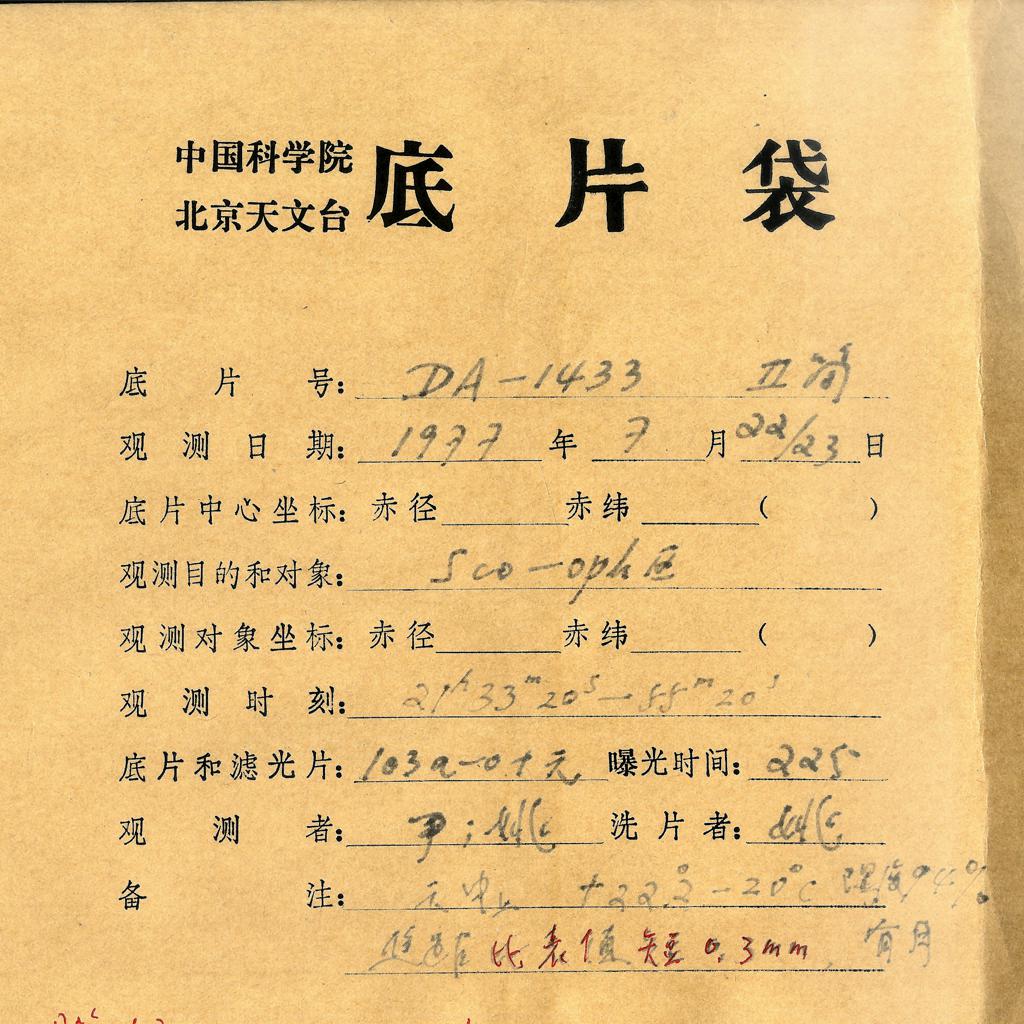 中国科学院
北京天文台
底片袋
底片号: DA-1433 II筒
观测日期: 1977年7月22/23日
底片中心坐标: 赤径 赤纬 ( )
观测目的和对象: Sco-oph 区
观测对象坐标: 赤径 赤纬 ( )
观测时刻: 21h33m20s-55m20s
底片和滤光片: 103a-0+无 曝光时间: 22分
观测者: 洗片者:
备注: +22°.2-20°C 湿度94%
比表值短0.3mm, 有月